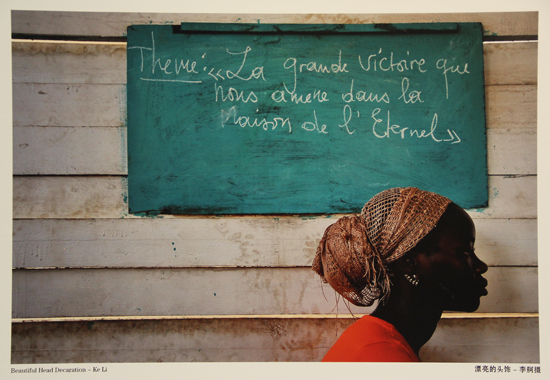 Theme: «La grande victoire que
nous amène dans la
Maison de l'Eternel»
Beautiful Head Decaration – Ke Li
漂亮的头饰 – 李舸摄